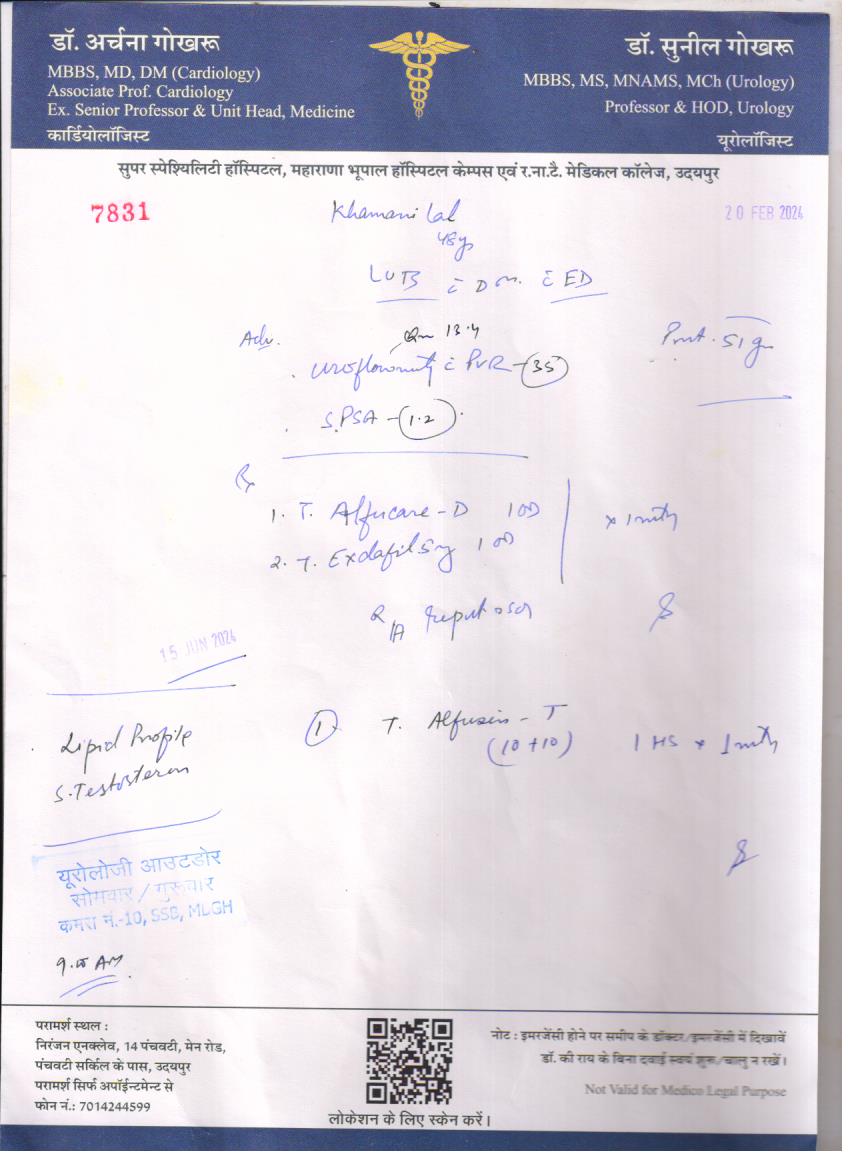 डॉ. अर्चना गोखरू
MBBS, MD, DM (Cardiology)
Associate Prof. Cardiology
Ex. Senior Professor & Unit Head, Medicine
कार्डियोलॉजिस्ट
डॉ. सुनील गोखरू
MBBS, MS, MNAMS, MCh (Urology)
Professor & HOD, Urology
यूरोलॉजिस्ट
सुपर स्पेश्यिलिटी हॉस्पिटल, महाराणा भूपाल हॉस्पिटल केम्पस एवं र.ना.टै. मेडिकल कॉलेज, उदयपुर
7831
Khamani Lal
20 FEB 2024
48y
LUTS c DM c ED
Adv.
Qm 13.4
Uroflowmetry c PVR - 35
S.PSA - 1.2
Rx
1. T. Alfucare-D 1 OD
x 1 mth
2. T. Exdafil 5mg 1 OD
15 JUN 2024
Lipid Profile
S. Testosteron
1 T. Alfusin - T
(10+10) 1 HS x 1 mth
यूरोलोजी आउटडोर
सोमवार / गुरूवार
कमरा नं.-10, SSB, MLGH
9.00 AM
परामर्श स्थल :
निरंजन एनक्लेव, 14 पंचवटी, मेन रोड,
पंचवटी सर्किल के पास, उदयपुर
परामर्श सिर्फ अपॉईन्टमेन्ट से
फोन नं.: 7014244599
लोकेशन के लिए स्केन करें।
नोट : इमरजेंसी होने पर समीप के डॉक्टर/इमरजेंसी में दिखावें
डॉ. की राय के बिना दवाई स्वयं शुरू/चालू न रखें।
Not Valid for Medico Legal Purpose